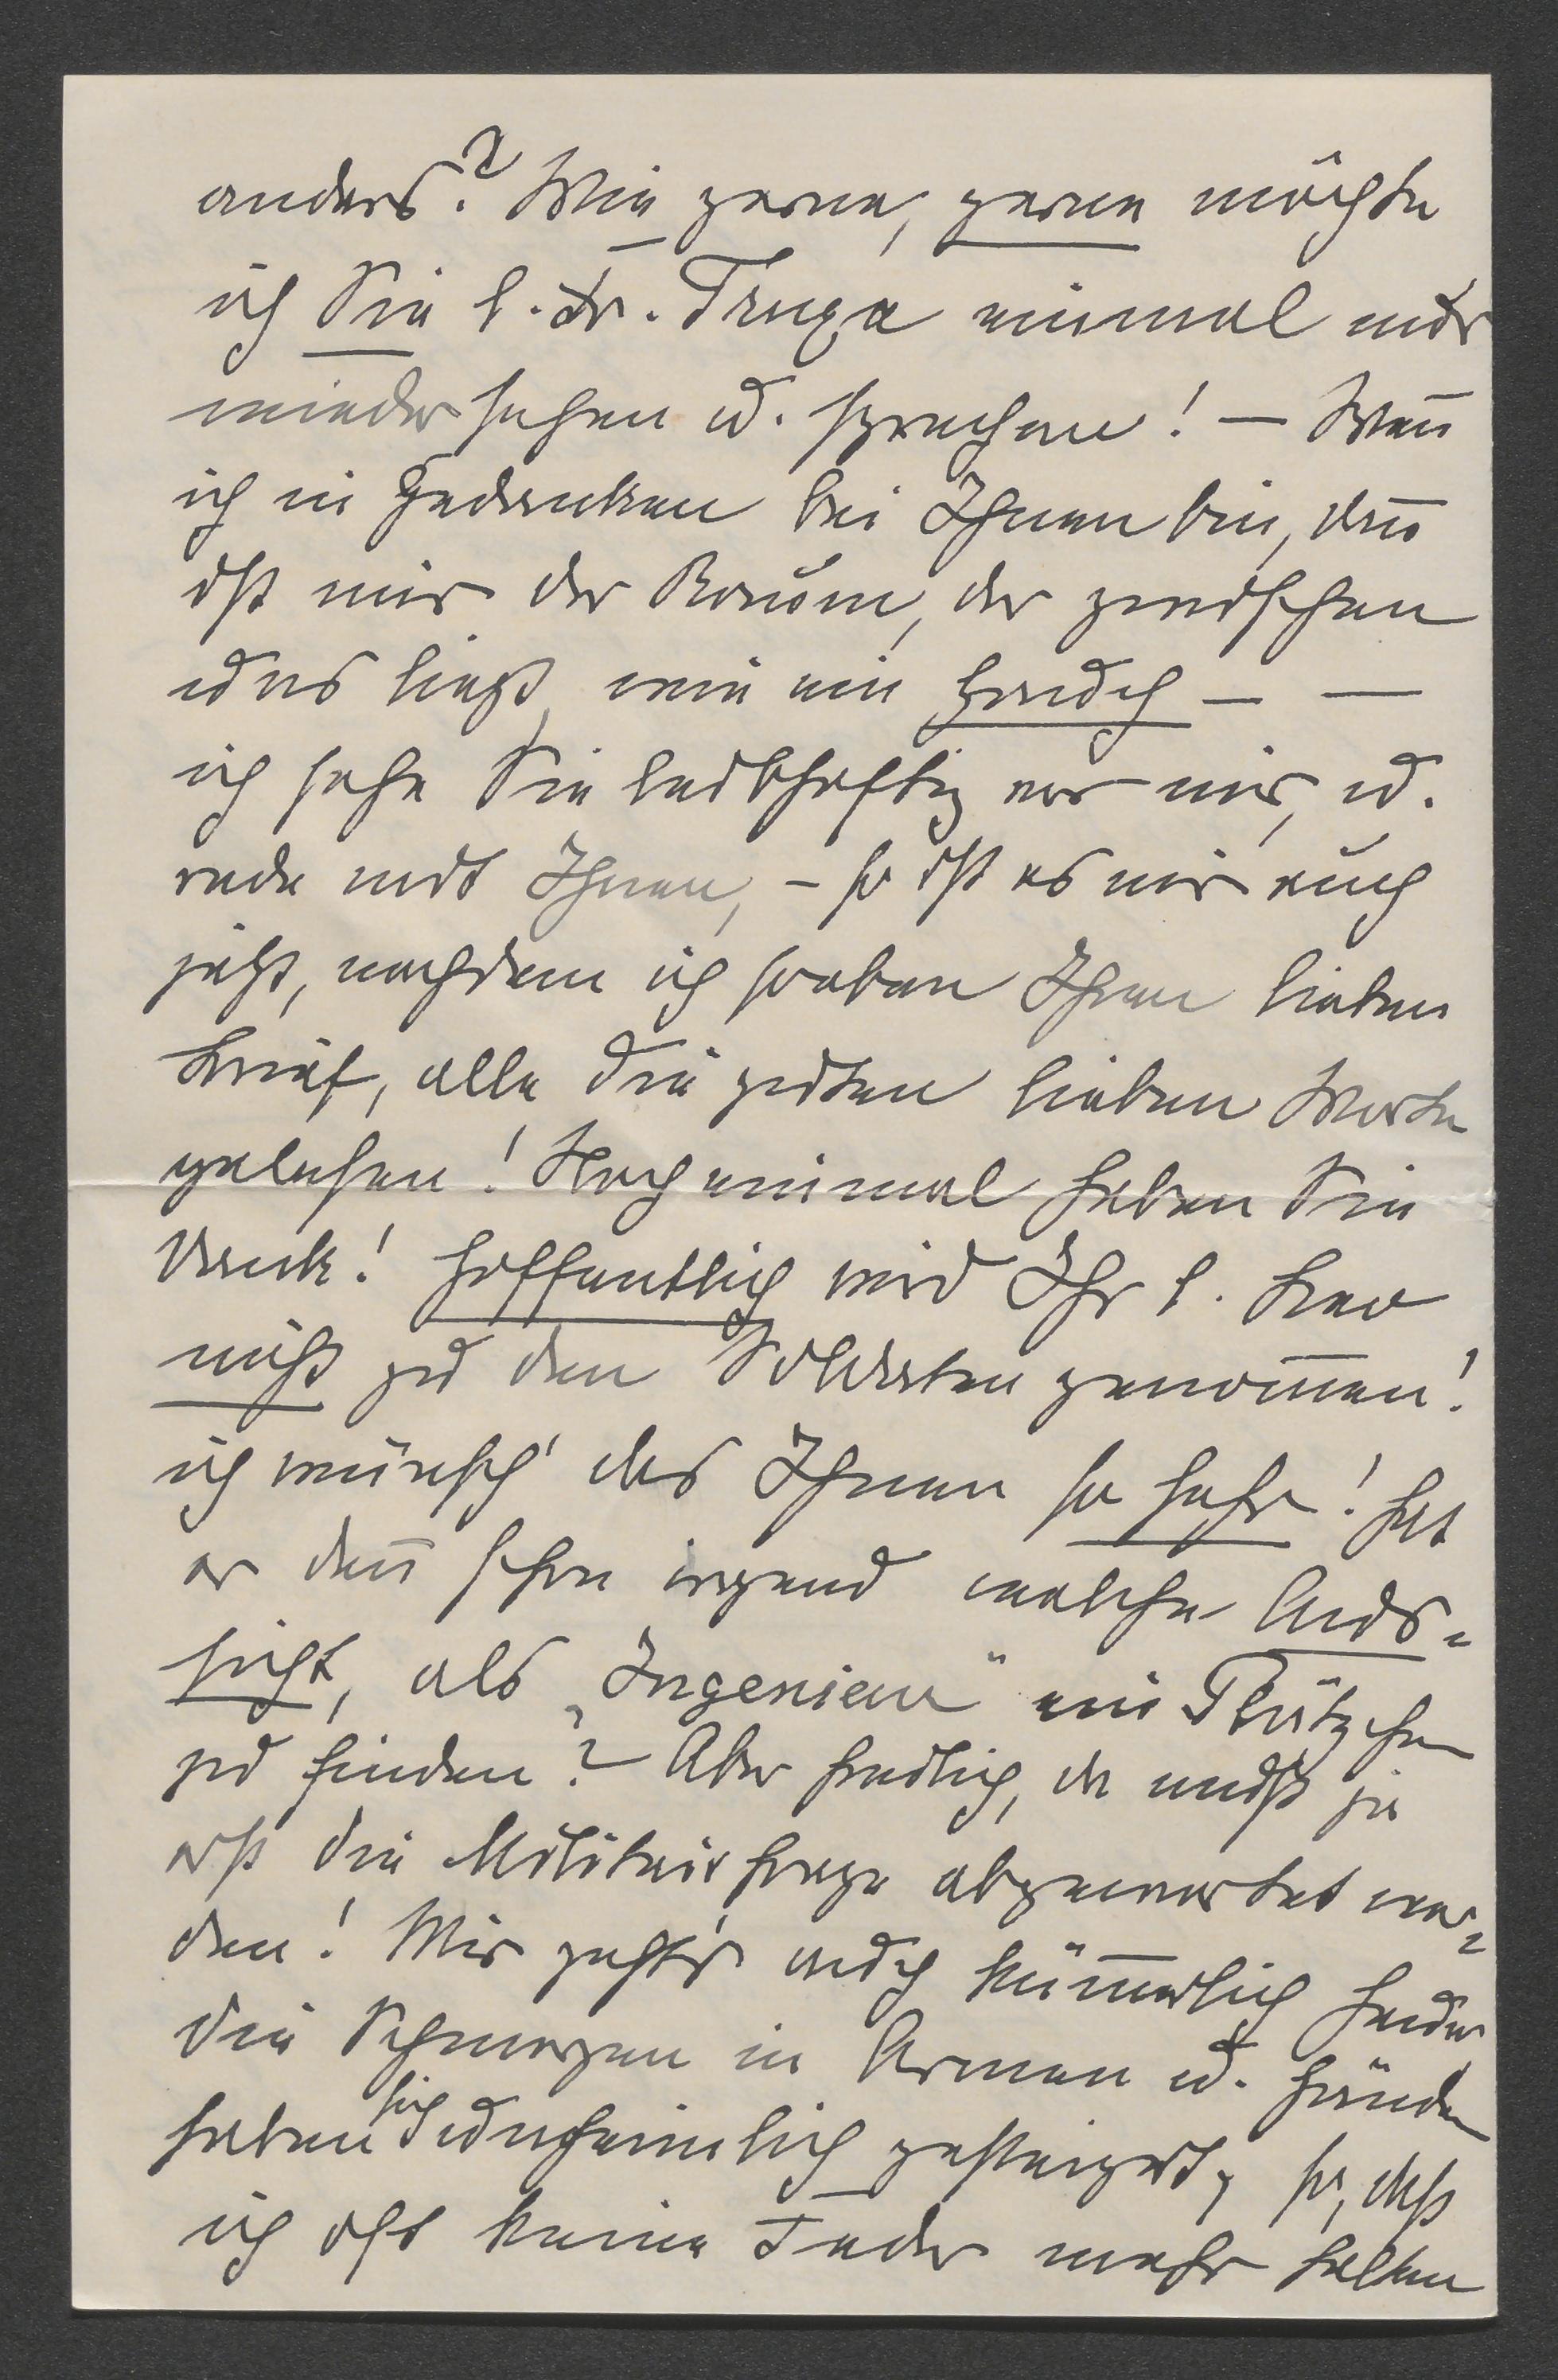 anders? Wie gerne, gerne möchte
ich Sie l. Fr. Truxa einmal nur
wiedersehen u. sprechen! — Wen̄
ich in Gedanken bei Ihnen bin, dan̄
ist mir der Raum, der zwischen
uns liegt, wie ein Hauch — —
ich sehe Sie leibhaftig vor mir, u.
rede mit Ihnen, – so ist es mir auch
jetzt, nachdem ich soeben Ihren lieben
Brief, alle die guten lieben Worte
gelesen! Noch einmal haben Sie
Dank! Hoffentlich wird Ihr l.
nicht zu den Soldaten genom̄en!
ich wünsch' das Ihnen so sehr! Hat
er den̄ schon irgend welche Aus=
sicht, als „Ingenieur" ein Plätzchen
zu finden? Aber freilich, da muß ja
erst die Militairfrage abgewartet wer=
den! Mir geht's auch küm̄erlich heuer
die Schmerzen in Armen u. Händen
haben sich unheimlich gesteigert, so, daß
ich oft keine Feder mehr halten